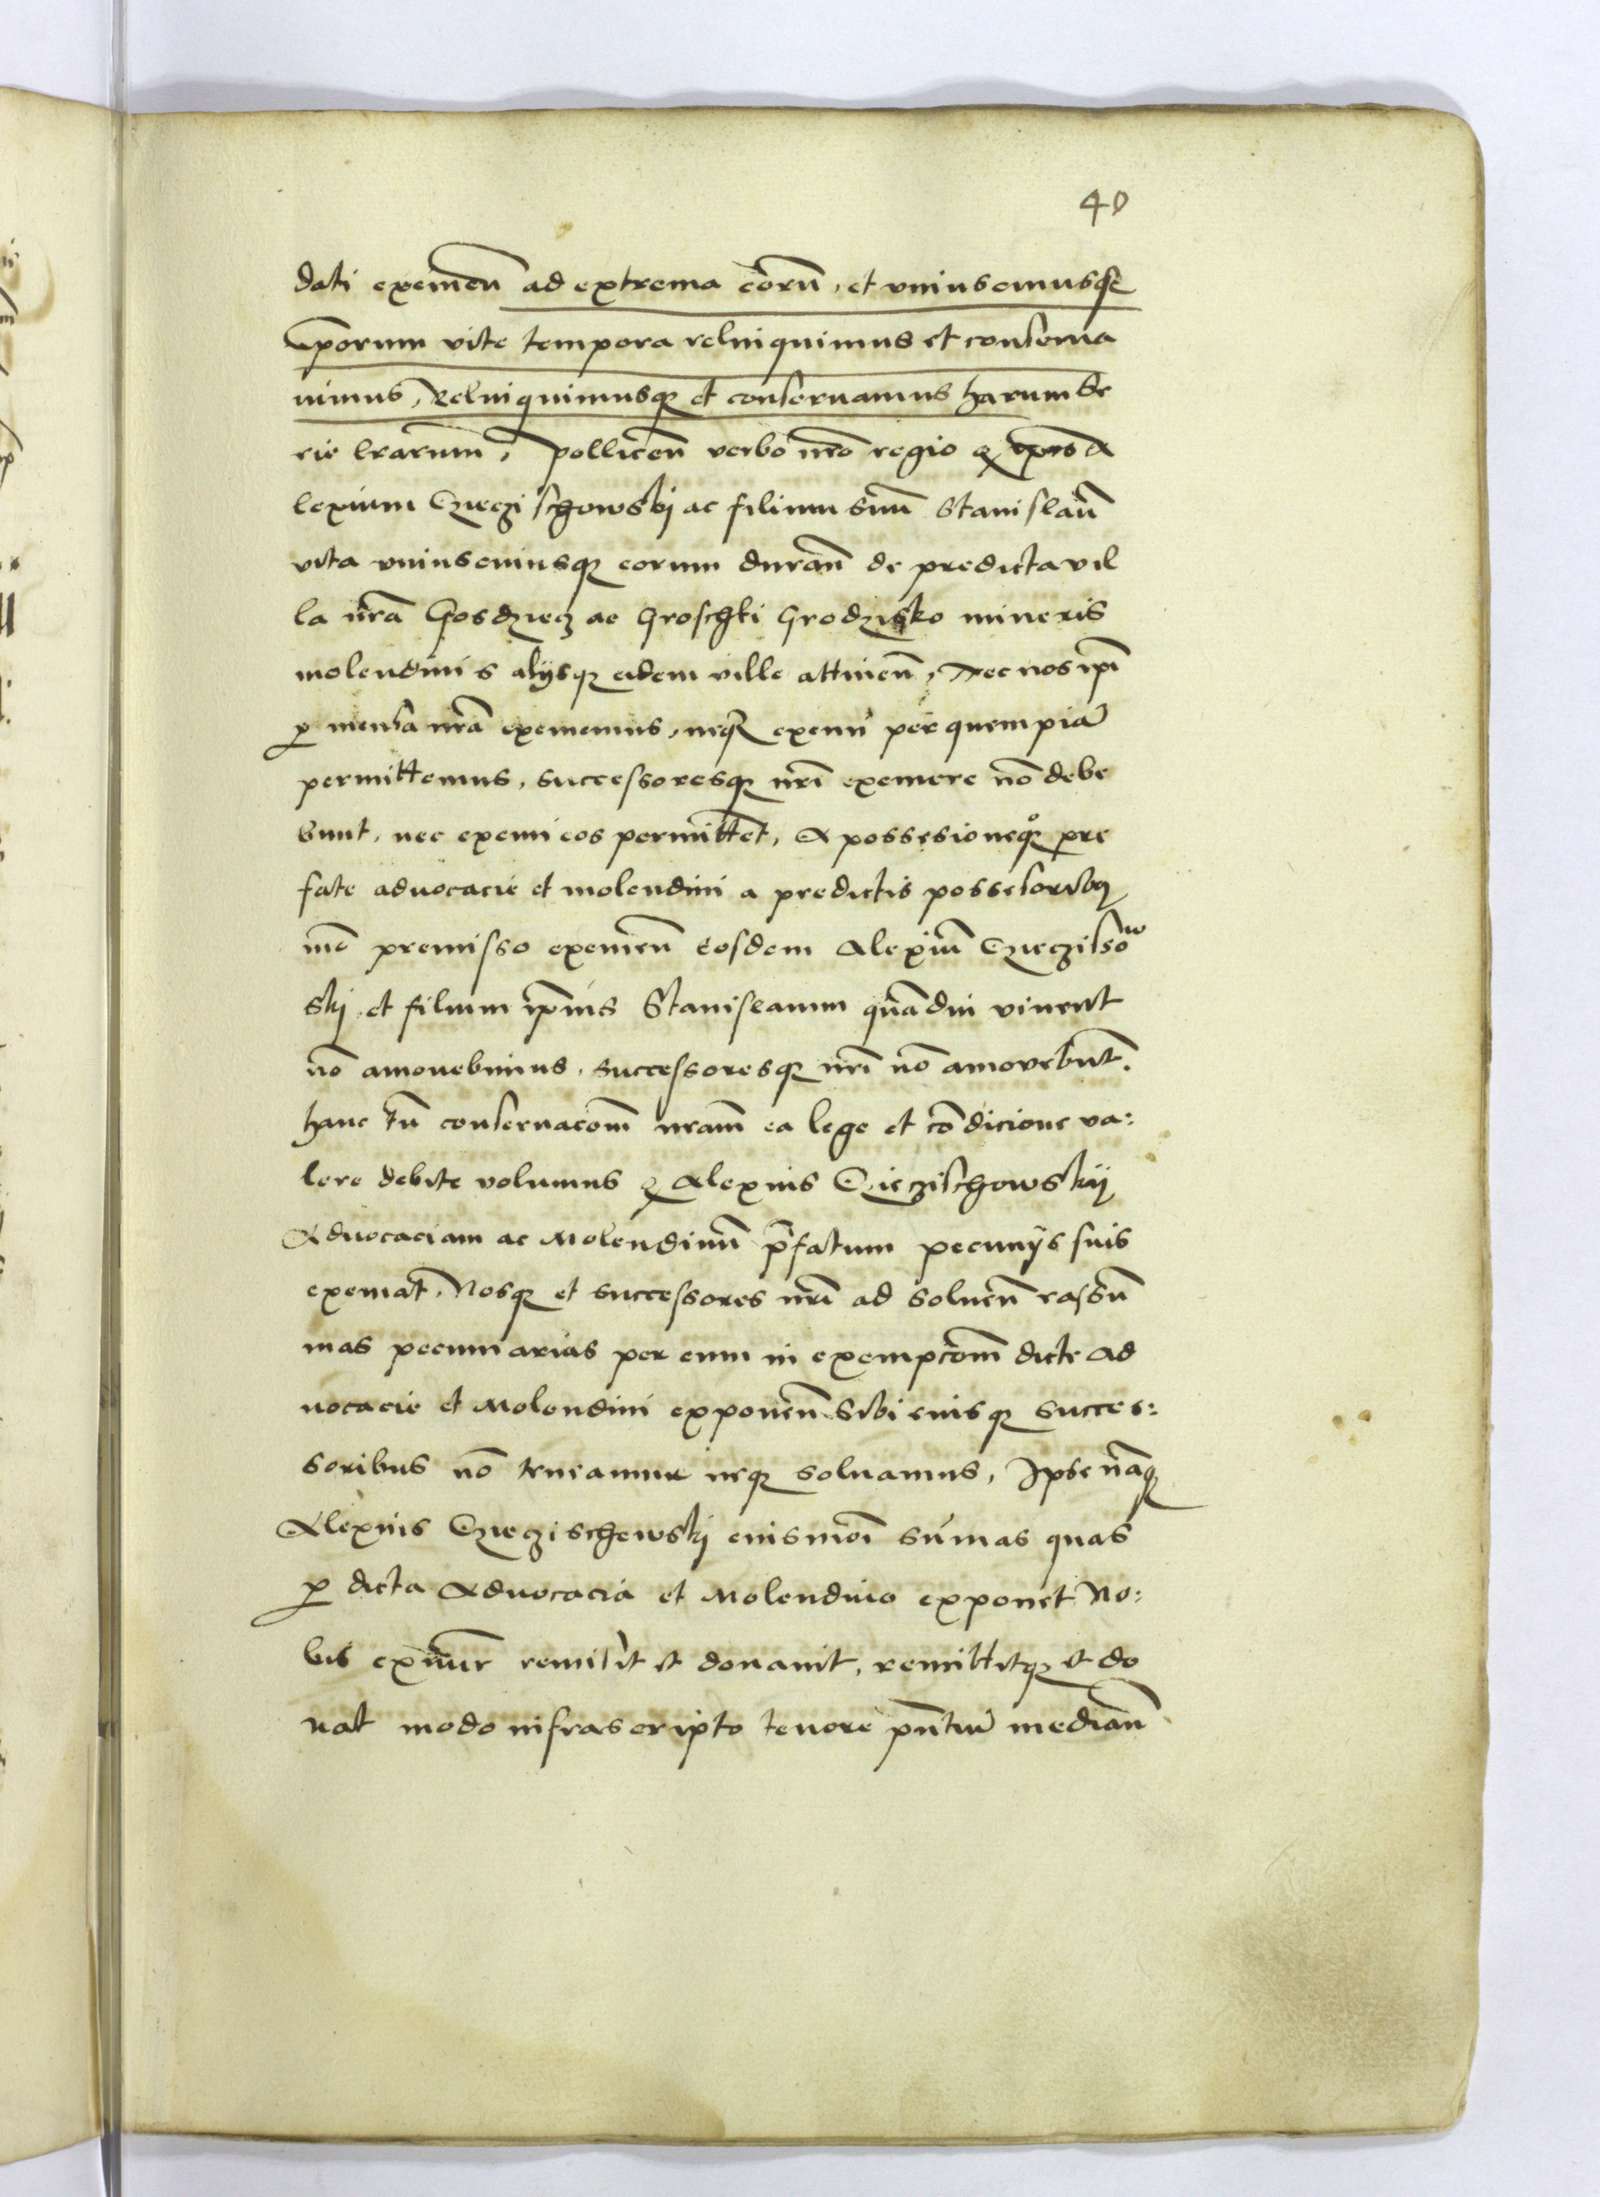 40
dati exemen̄ ad extrema eorū, et vniuscuiusq̨
ip̄orum vite tempora relinquimus et conserua
uimus, Relinquimusq̨ et conseruamus harum se
rie lr̄arum, Pollicen̄ verbo nr̄o regio q̨ ip̄os A
lexium Czieczischowskj ac filium suū Stanislaū
vita vniuscuiusq̨ eorum duran̄ de predicta vil
la nr̄a Gosdziecz ac Groschki Grodzisko mineris
molendinis alijsq̨ eidem ville attinen̄, Nec nos ip̄i
p̱ mensa nr̄a eximemus, neq̨ eximi per quempiā
permittemus, successoresq̨ nr̄i eximere nō debe
bunt, nec eximi eos permittēt, A possesioneq̨ pre
fate aduocacie et molendini a predictis possesoribus
mō premisso exemen̄ Eosdem Alexiū Czieczisow
skj et filium ip̄ius Stanislaum quādiu viuent
nō amouebimus, successoresq̨ nr̄i nō amouebūt.
hanc tn̄ conseruacōm nr̄am ea lege et cōdicione va:
lere debite volumus q̨ Alexius Czieczischowskij
Aduocaciam ac Molendinū p̄fatum pecunijs suis
eximat, Nosq̨ et successores nr̄i ad soluen̄ eas sū
mas pecuniarias per eum in exempcōm dicte ad
uocacie et Molendini exponen̄ Sibi eiusq̨ succes:
soribus nō teneamur neq̨ soluamus, Ipse nāq̨
Alexius Czieczischewskj eiusmōi sūmas quas
p̱ dicta Aduocacia et Molendino exponet No:
bis ex nūc remisit et donauit, remittitq̨ et do
nat modo infrascripto tenore pn̄tiū median̄